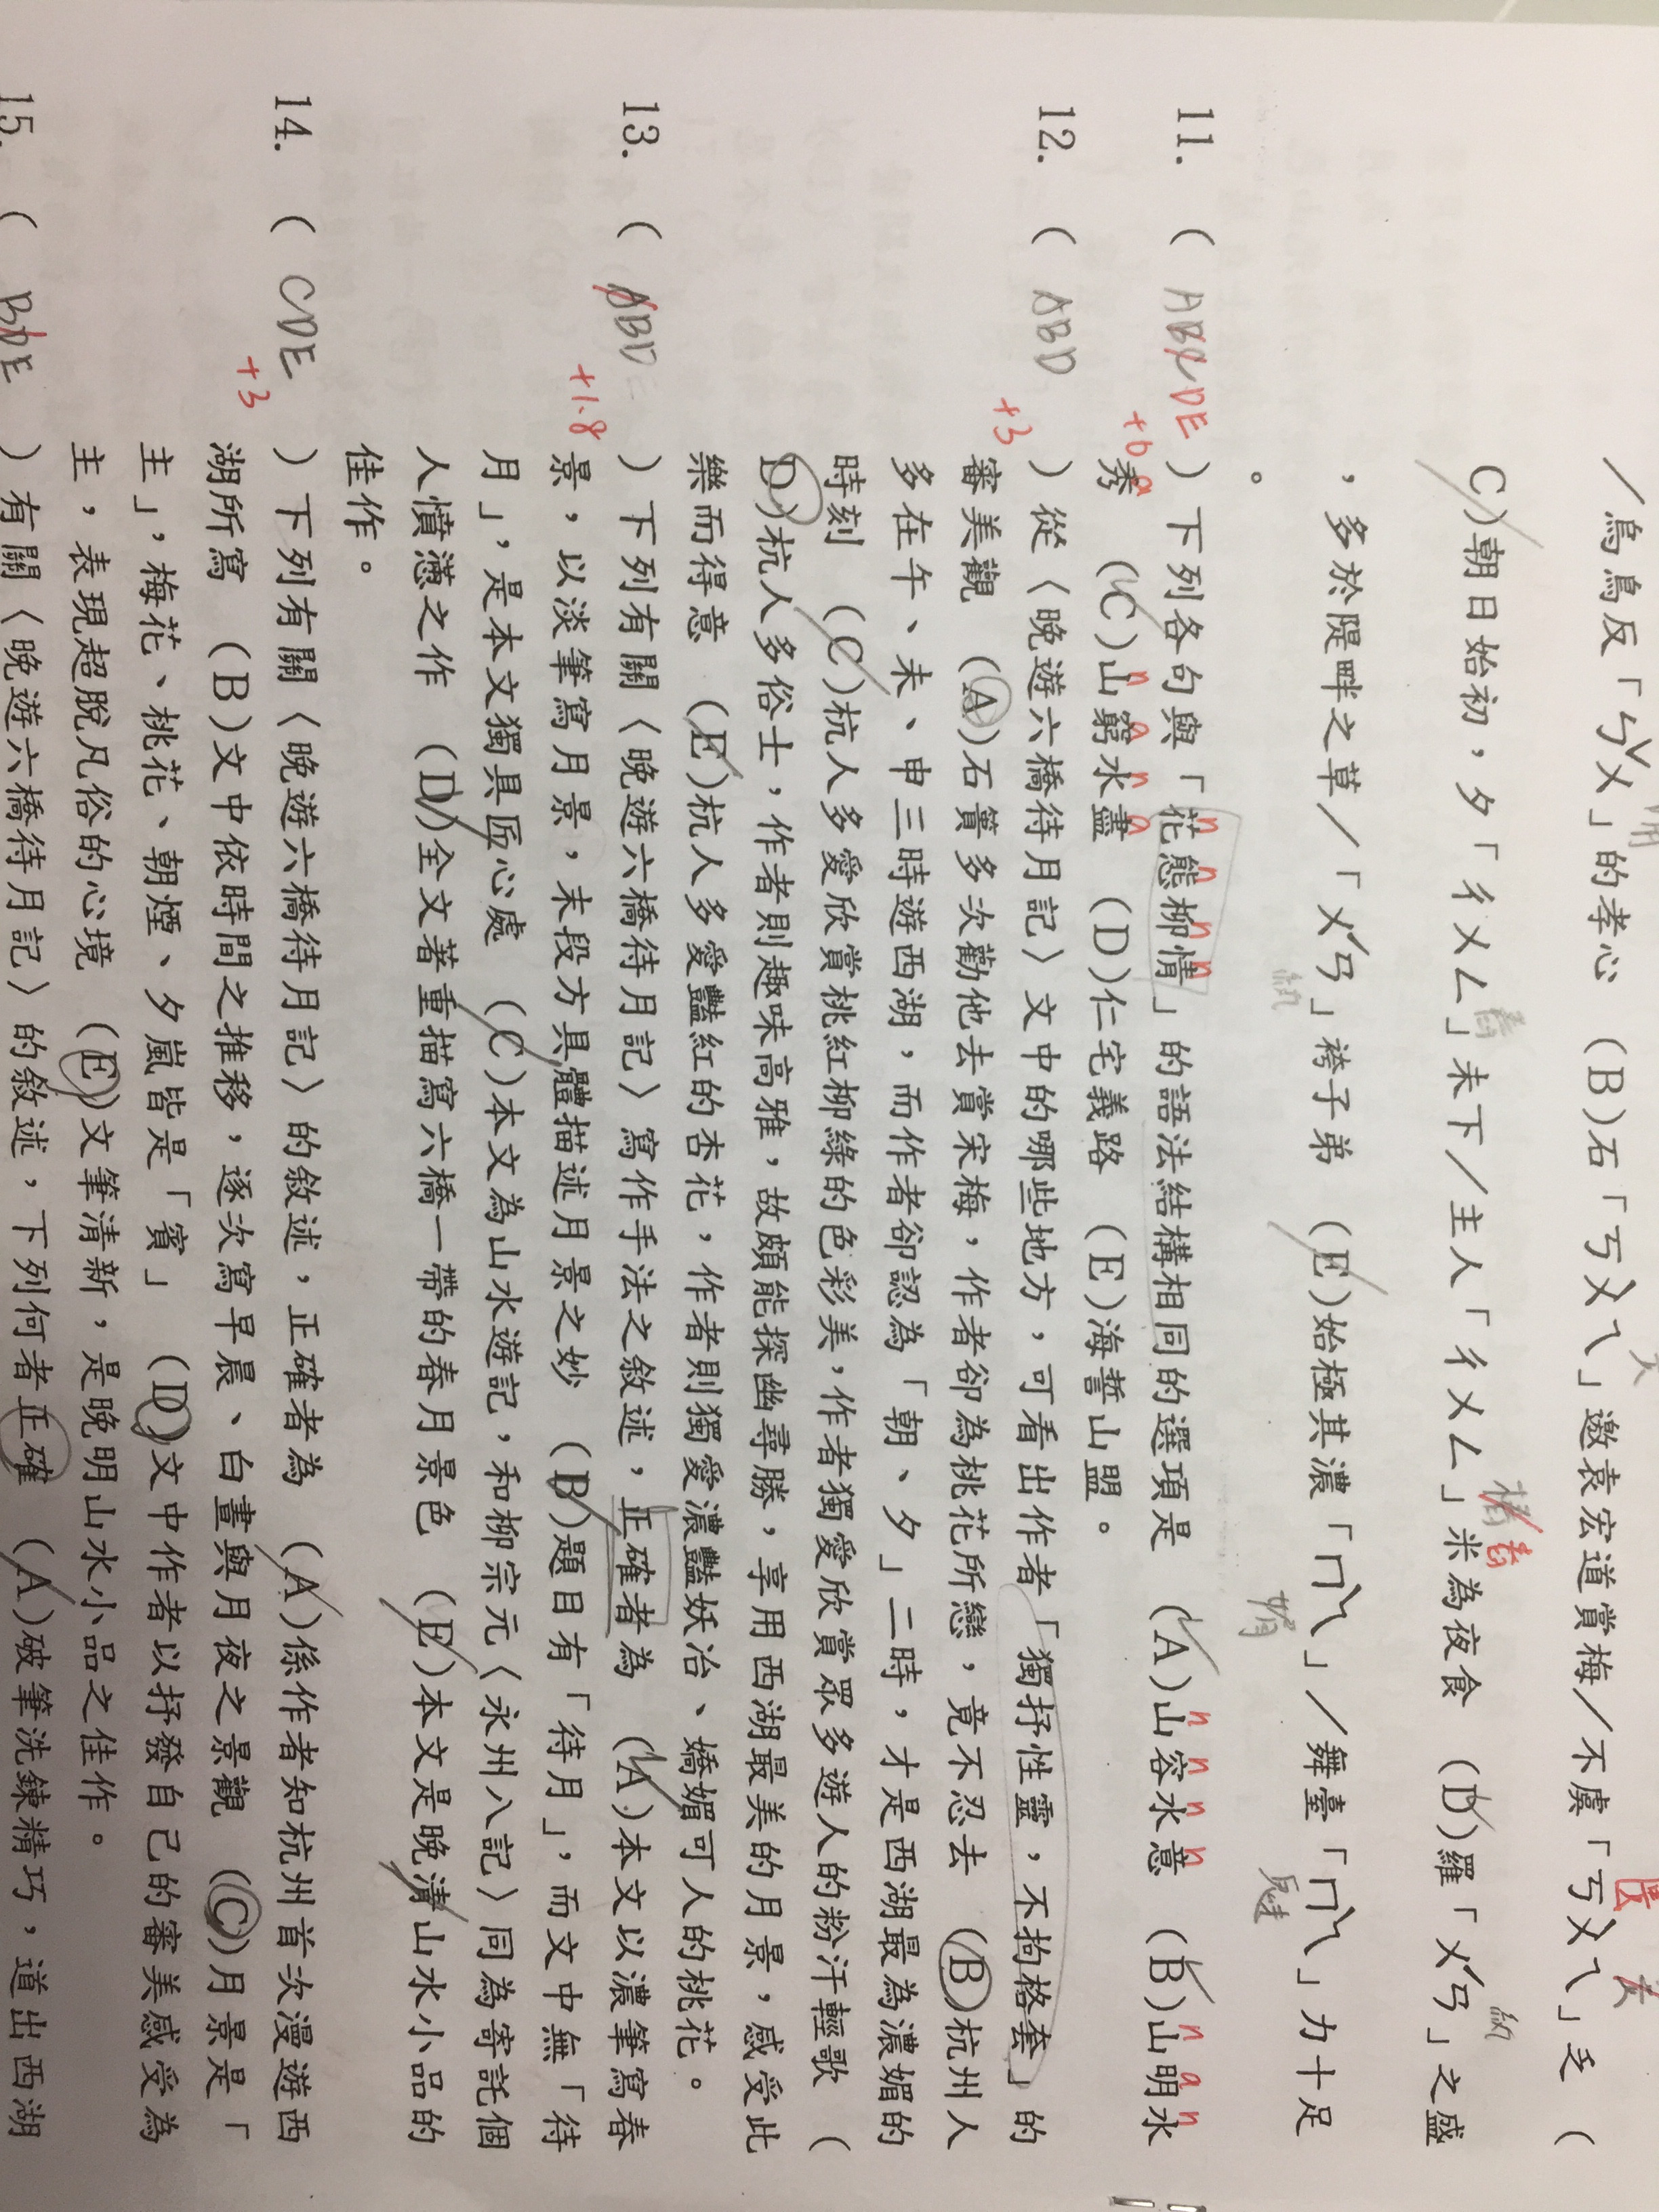 ／烏鳥反「ㄅㄨˇ」的孝心　(B)石「ㄎㄨㄟˋ」邀袁宏道賞梅／不虞「ㄎㄨㄟˋ」乏　(
C)朝日始初，夕「ㄔㄨㄥ」未下／主人「ㄔㄨㄥ」米為夜食　(D)羅「ㄨㄢˊ」之盛
，多於隄畔之草／「ㄨㄢˊ」袴子弟　(E)始極其濃「ㄇㄟˋ」／舞臺「ㄇㄟˋ」力十足
。
11. ( ABCDE ) 下列各句與「花態柳情」的語法結構相同的選項是　(A)山容水意　(B)山明水
秀　(C)山窮水盡　(D)仁宅義路　(E)海誓山盟。
12. ( ABD ) 從〈晚遊六橋待月記〉文中的哪些地方，可看出作者「獨抒性靈，不拘格套」的
+3
審美觀　(A)石簣多次勸他去賞宋梅，作者卻為桃花所戀，竟不忍去　(B)杭州人
多在午、未、申三時遊西湖，而作者卻認為「朝、夕」二時，才是西湖最為濃媚的
時刻　(C)杭人多愛欣賞桃紅柳綠的色彩美，作者獨愛欣賞眾多遊人的粉汗輕歌　(
D)杭人多俗士，作者則趣味高雅，故頗能探幽尋勝，享用西湖最美的月景，感受此
樂而得意　(E)杭人多愛豔紅的杏花，作者則獨愛濃豔妖冶、嬌媚可人的桃花。
13. ( ABD ) 下列有關〈晚遊六橋待月記〉寫作手法之敘述，正確者為　(A)本文以濃筆寫春
+1.8
景，以淡筆寫月景，末段方具體描述月景之妙　(B)題目有「待月」，而文中無「待
月」，是本文獨具匠心處　(C)本文為山水遊記，和柳宗元〈永州八記〉同為寄託個
人憤懣之作　(D)全文著重描寫六橋一帶的春月景色　(E)本文是晚清山水小品的
佳作。
14. ( CDE ) 下列有關〈晚遊六橋待月記〉的敘述，正確者為　(A)係作者知杭州首次漫遊西
+3
湖所寫　(B)文中依時間之推移，逐次寫早晨、白晝與月夜之景觀　(C)月景是「
主」，梅花、桃花、朝煙、夕嵐皆是「賓」　(D)文中作者以抒發自己的審美感受為
主，表現超脫凡俗的心境　(E)文筆清新，是晚明山水小品之佳作。
15. ( BDE ) 有關〈晚遊六橋待月記〉的敘述，下列何者正確　(A)破筆洗鍊精巧，道出西湖